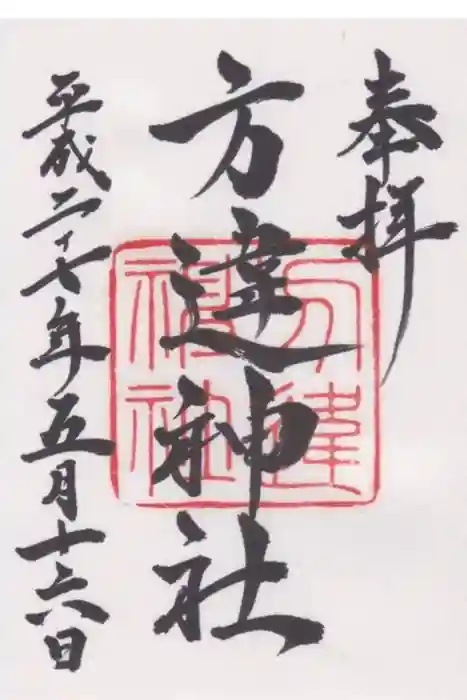 奉拝
方違神社
方違
神社
平成二十七年五月十六日